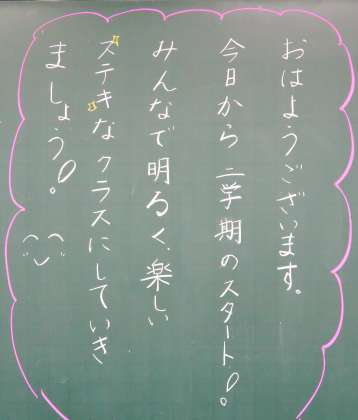 おはようございます。
今日から二学期のスタート!。
みんなで明るく、楽しい
ステキなクラスにしていき
ましょう!。